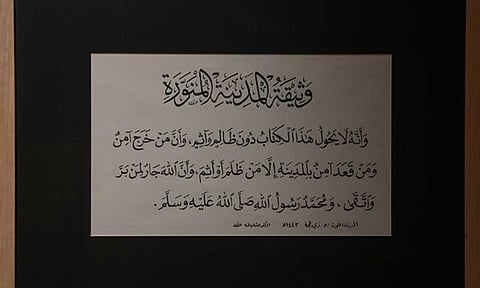 وَثِيقَةُ المَدِينَةِ المُنَوَّرَةِ
وَأَنَّهُ لَا يَحُولُ هَذَا الْكِتَابُ دُونَ ظَالِمٍ وَآثِمٍ، وَأَنَّ مَنْ خَرَجَ آمِنٌ
وَمَنْ قَعَدَ آمِنٌ بِالمَدِينَةِ إِلَّا مَنْ ظَلَمَ أَوْ أَثِمَ، وَأَنَّ اللهَ جَارٌ لِمَنْ بَرَّ
وَاتَّقَى، وَمُحَمَّدٌ رَسُولُ اللهِ صَلَّى اللهُ عَلَيْهِ وَسَلَّمَ.
١٤٤٣هـ